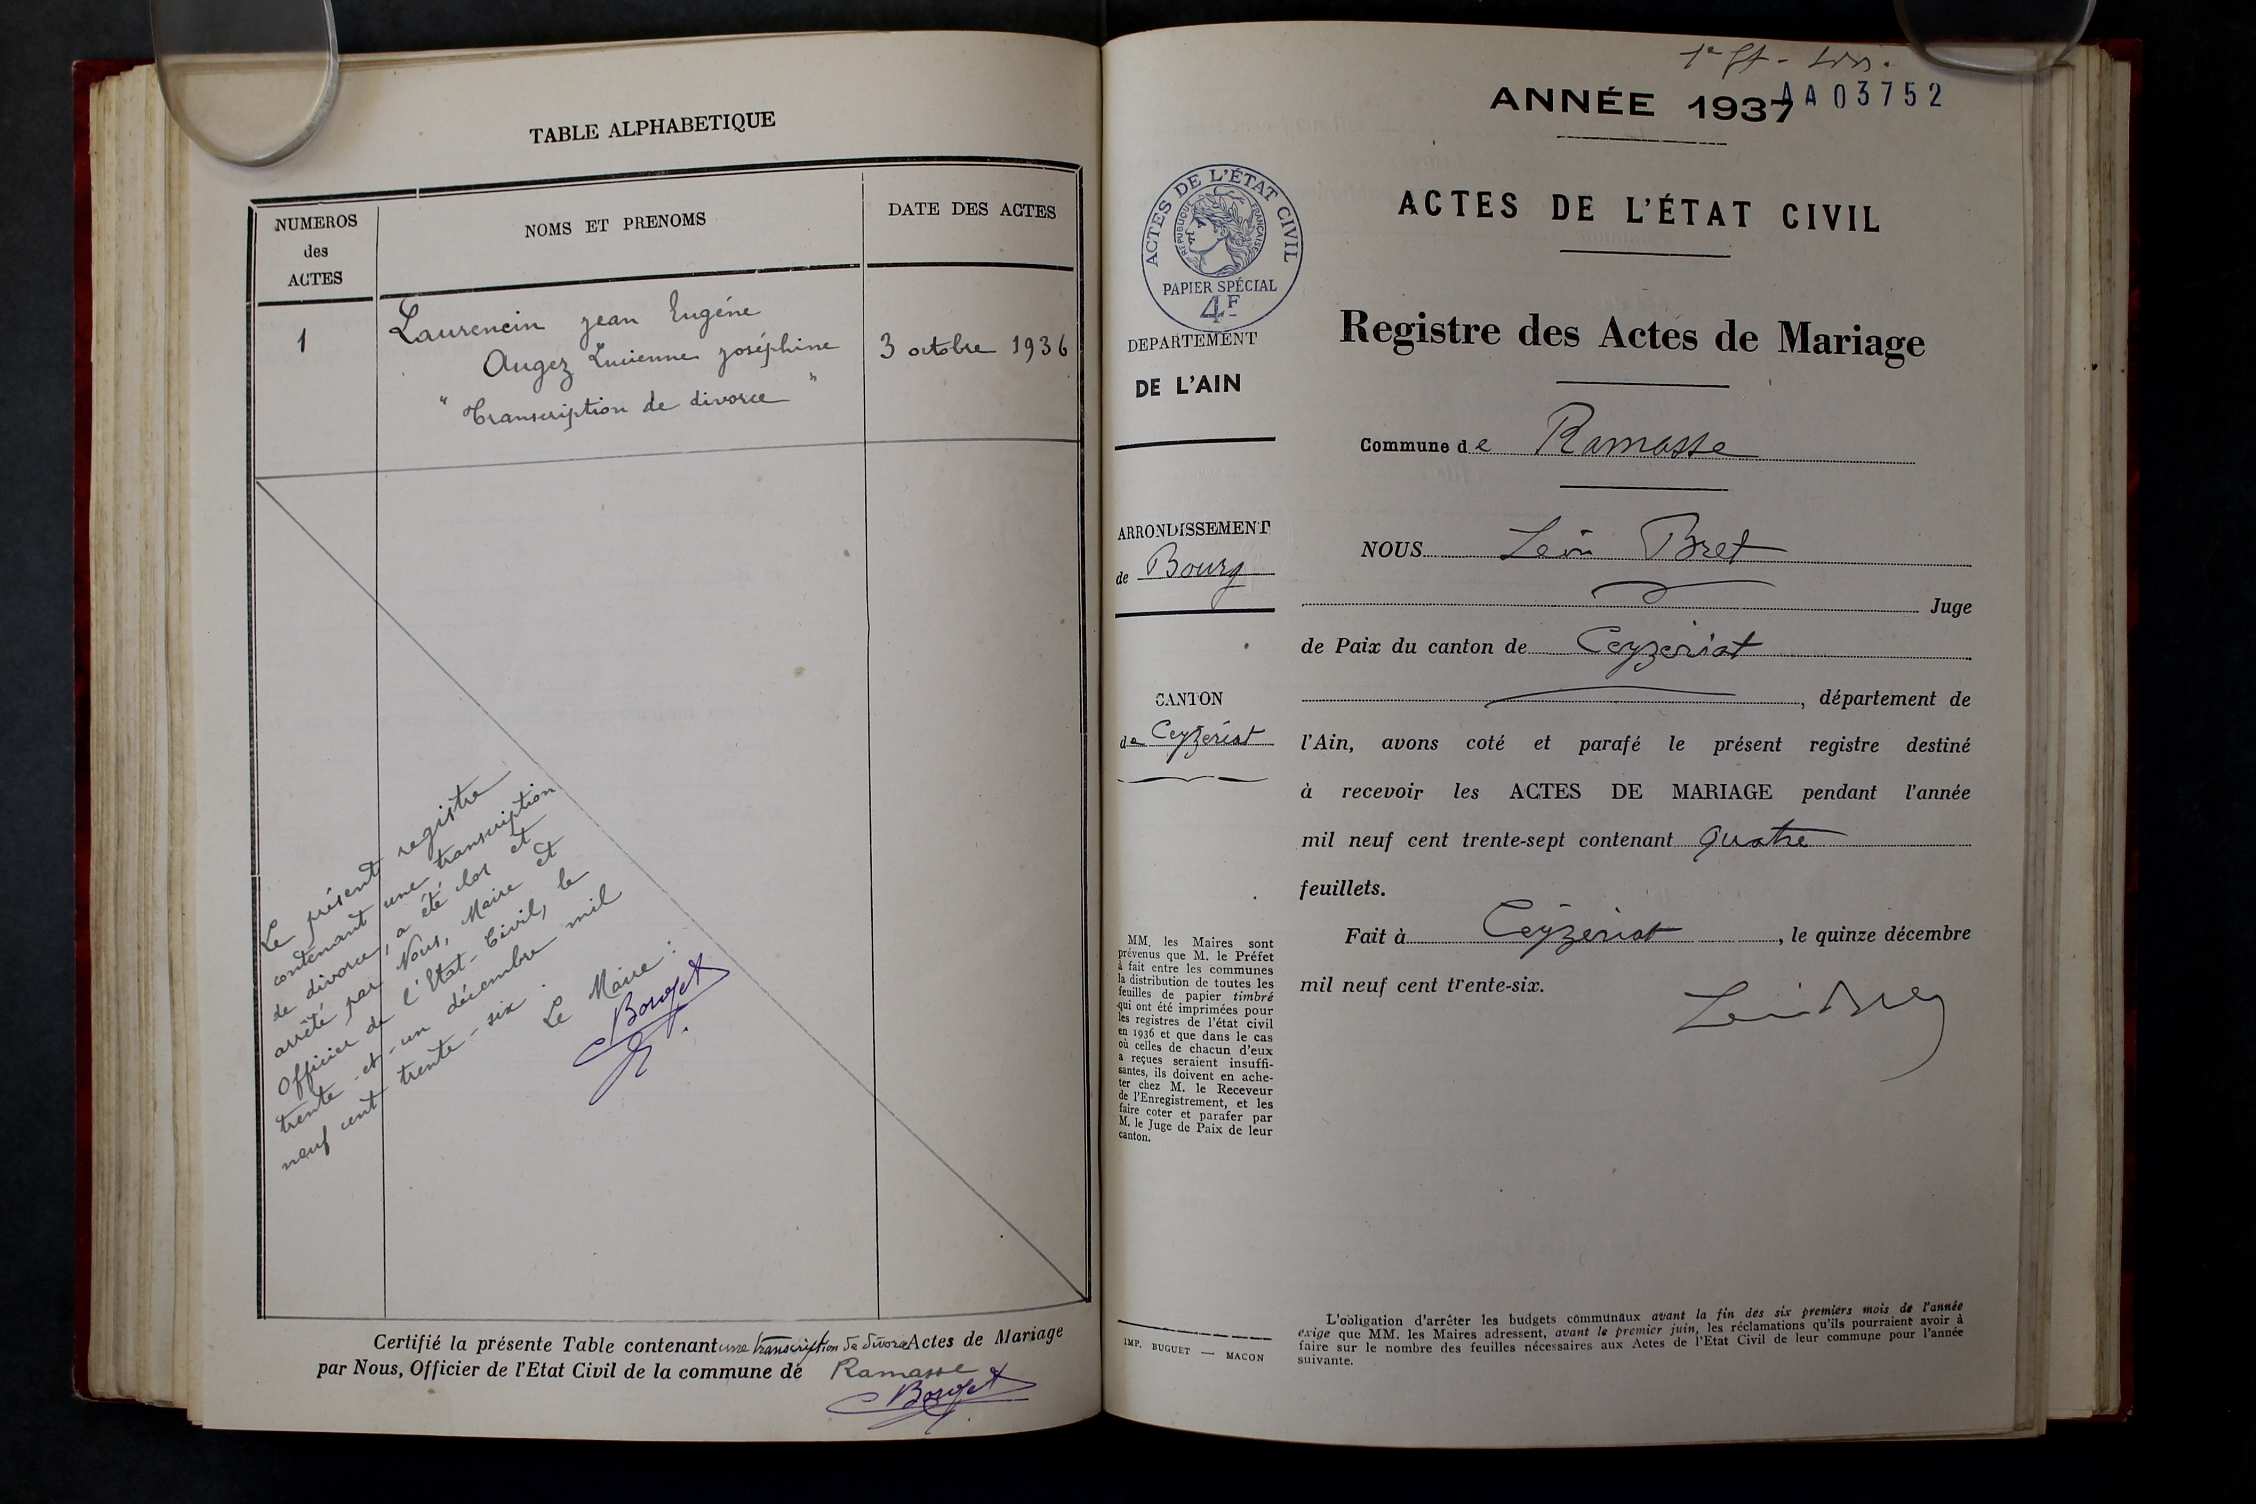 TABLE ALPHABETIQUE
NUMEROS
des
ACTES
NOMS ET PRENOMS
DATE DES ACTES
1
Laurencin Jean Eugène
Augez Lucienne Joséphine
3 octobre 1936
" Transcription de divorce "
Le présent registre
contenant une transcription
de divorce, a été clos et
arrêté par Nous, Maire et
Officier de l'Etat-Civil, le
trente-et-un décembre mil
neuf cent trente-six.
Le Maire :
Certifié la présente Table contenant une transcription de divorce Actes de Mariage
par Nous, Officier de l'Etat Civil de la commune de Ramasse
AA03752
ANNÉE 1937
ACTES DE L'ÉTAT CIVIL
ACTES DE L'ÉTAT CIVIL
RÉPUBLIQUE FRANÇAISE
PAPIER SPÉCIAL
4F
Registre des Actes de Mariage
DEPARTEMENT
DE L'AIN
Commune de Ramasse
ARRONDISSEMENT
de Bourg
CANTON
de Ceyzériat
NOUS Léon Bret
Juge
de Paix du canton de Ceyzériat
, département de
l'Ain, avons coté et parafé le présent registre destiné
à recevoir les ACTES DE MARIAGE pendant l'année
mil neuf cent trente-sept contenant quatre
feuillets.
Fait à Ceyzériat, le quinze décembre
mil neuf cent trente-six.
MM. les Maires sont
prévenus que M. le Préfet
à fait entre les communes
la distribution de toutes les
feuilles de papier timbré
qui ont été imprimées pour
les registres de l'état civil
en 1936 et que dans le cas
où celles de chacun d'eux
a reçues seraient insuffi-
santes, ils doivent en ache-
ter chez M. le Receveur
de l'Enregistrement, et les
faire coter et parafer par
M. le Juge de Paix de leur
canton.
IMP. BUGUET — MACON
L'obligation d'arrêter les budgets communaux avant la fin des six premiers mois de l'année
exige que MM. les Maires adressent, avant le premier juin, les réclamations qu'ils pourraient avoir à
faire sur le nombre des feuilles nécessaires aux Actes de l'Etat Civil de leur commune pour l'année
suivante.